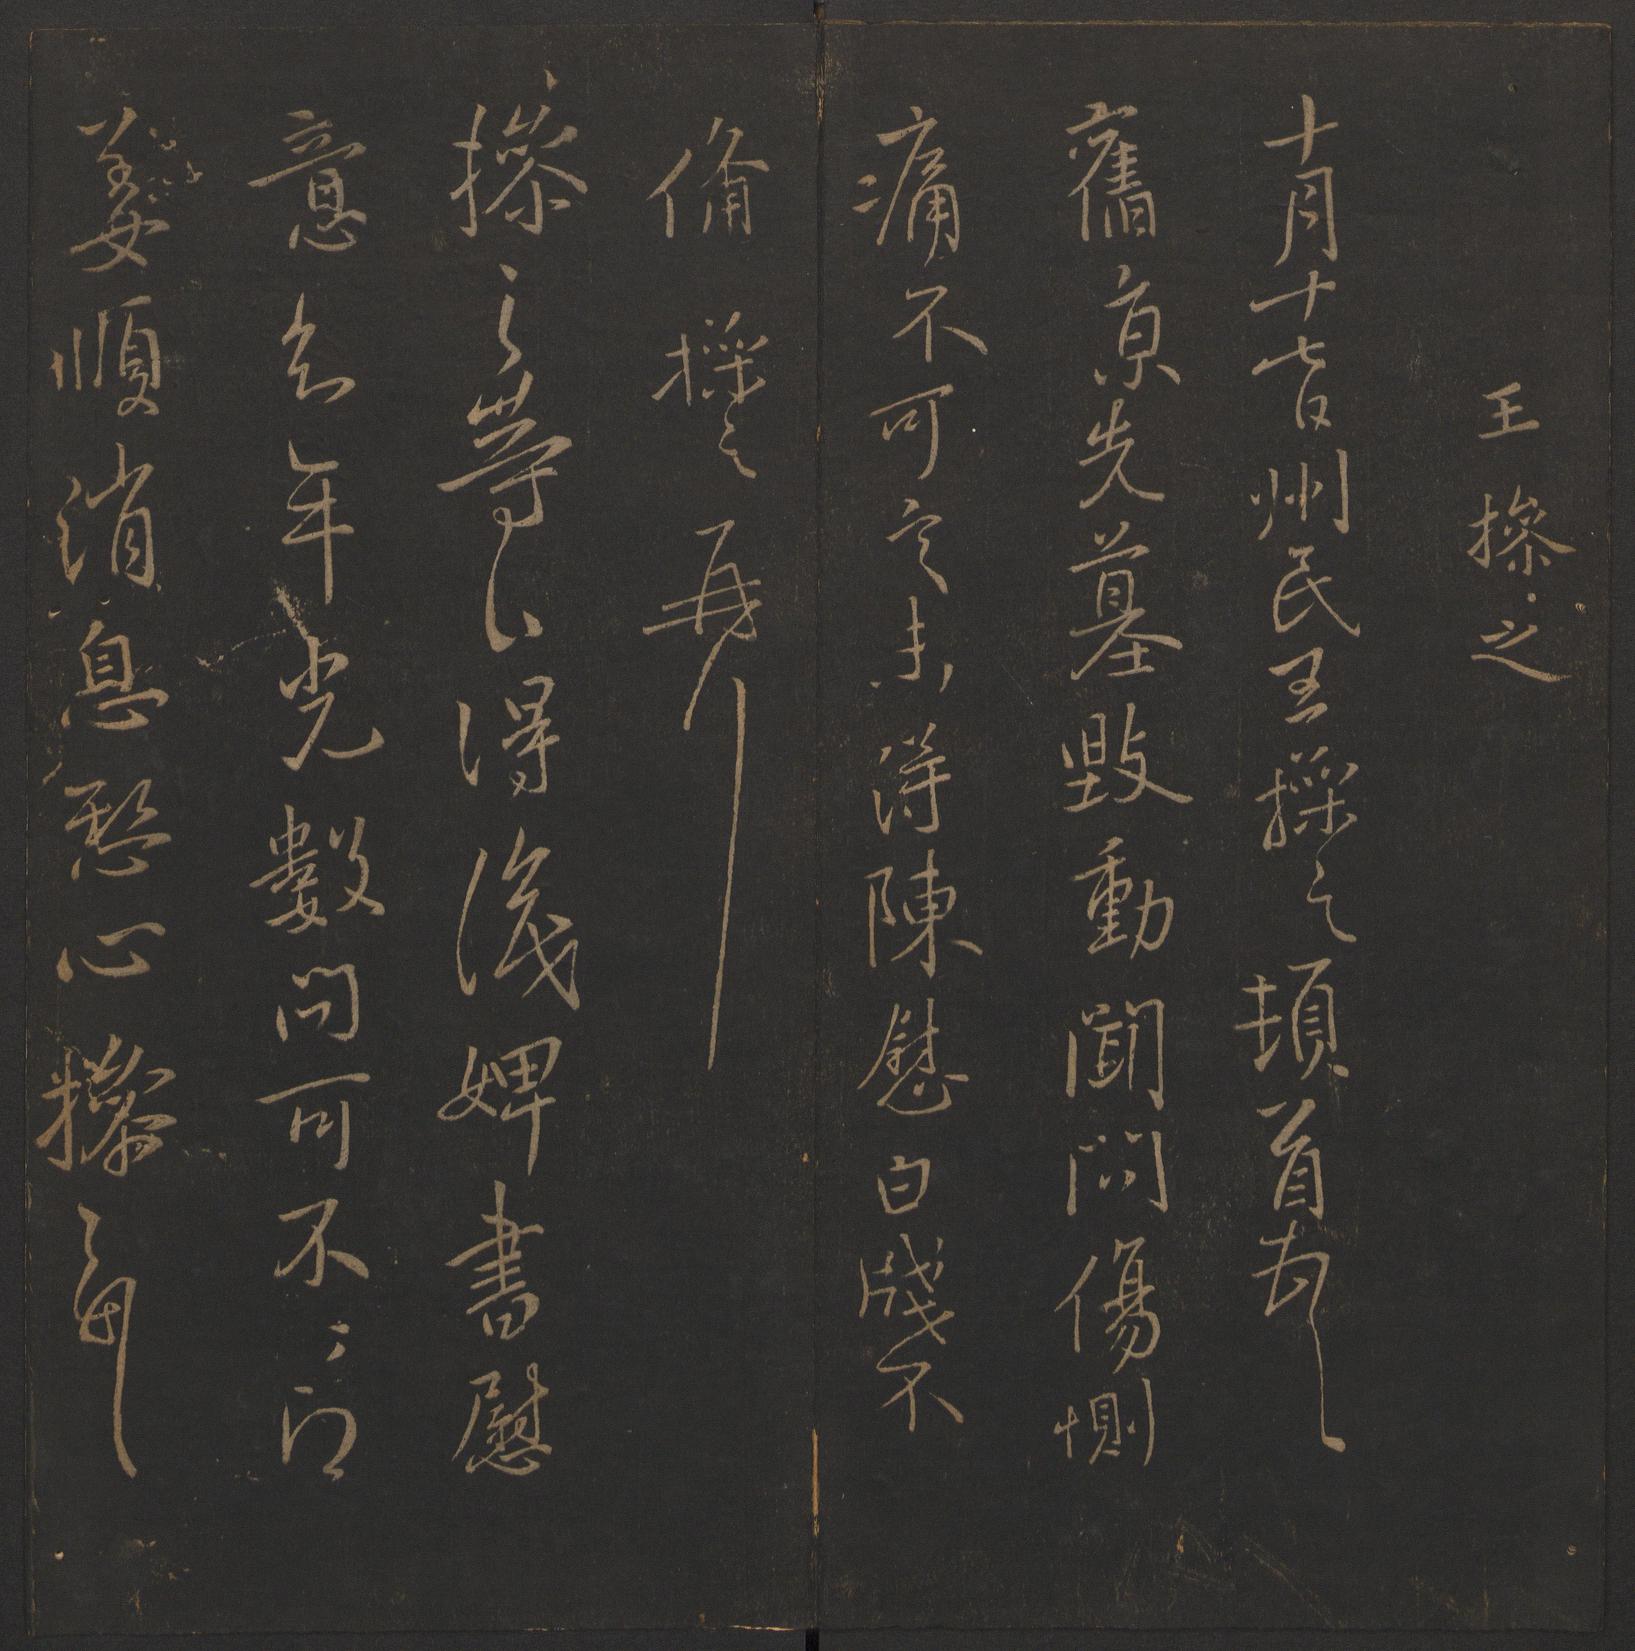 王操之
十月十七日州民王操之頓首
舊京先墓毀動聞問傷惻
痛不可言未得陳慰白牋不
備操之再
操之等
得識婢書慰
意
年光數問可不
姜順消息愁心操之